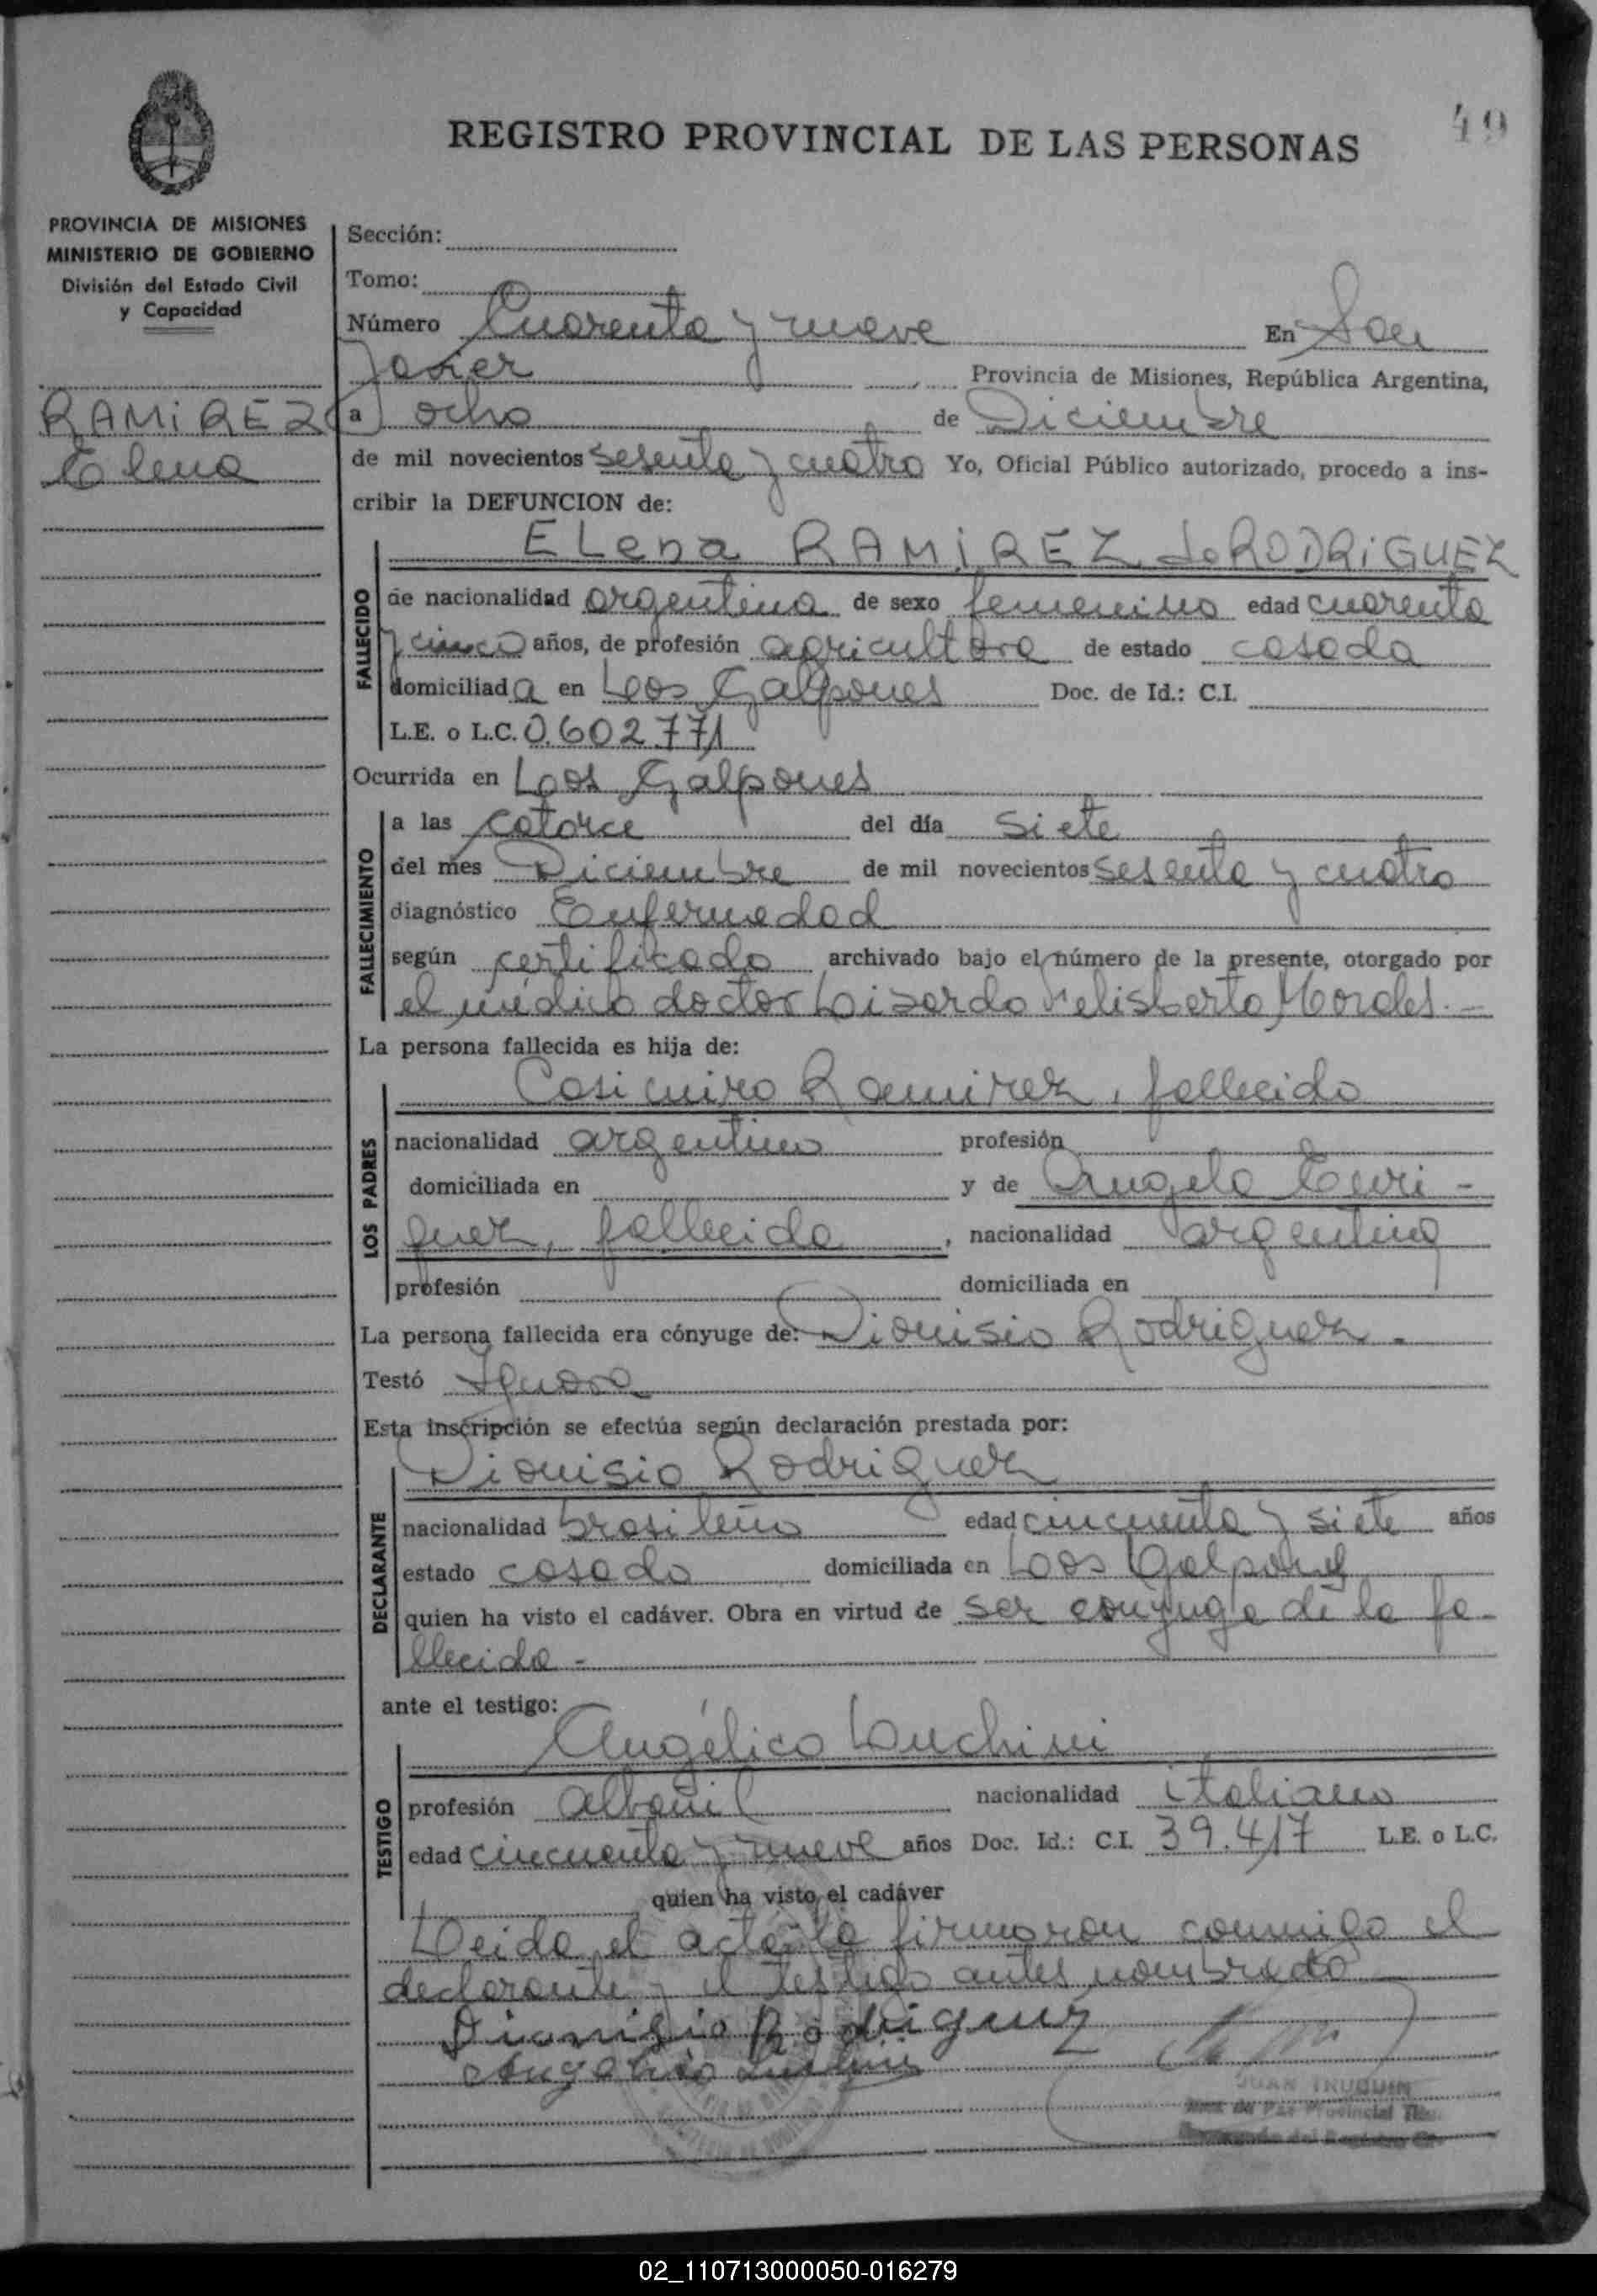 49
REGISTRO PROVINCIAL DE LAS PERSONAS
PROVINCIA DE MISIONES
MINISTERIO DE GOBIERNO
División del Estado Civil
y Capacidad
RAMIREZ
Elena
Sección:
Tomo:
Número Cuarenta y nueve En San
Javier Provincia de Misiones, República Argentina,
a ocho de Diciembre
de mil novecientos sesenta y cuatro Yo, Oficial Público autorizado, procedo a ins-
cribir la DEFUNCION de:
ELena RAMIREZ de RODRIGUEZ
FALLECIDO
de nacionalidad argentina de sexo femenino edad cuarenta
y cinco años, de profesión agricultora de estado casada
domiciliada en Los Galpones Doc. de Id.: C.I.
L.E. o L.C. 0.602.771
Ocurrida en Los Galpones
FALLECIMIENTO
a las catorce del día siete
del mes Diciembre de mil novecientos sesenta y cuatro
diagnóstico Enfermedad
según certificado archivado bajo el número de la presente, otorgado por
el médico doctor Lisardo Felisberto Morales.-
La persona fallecida es hija de:
LOS PADRES
Casimiro Ramirez, fallecido
nacionalidad argentino profesión
domiciliada en y de Angela Enri-
quez, fallecida, nacionalidad argentina
profesión domiciliada en
La persona fallecida era cónyuge de: Dionisio Rodriguez.
Testó Ignora
Esta inscripción se efectúa según declaración prestada por:
DECLARANTE
Dionisio Rodriguez
nacionalidad brasileño edad cincuenta y siete años
estado casado domiciliada en Los Galpones
quien ha visto el cadáver. Obra en virtud de ser conyuge de la fa-
llecida-
ante el testigo:
TESTIGO
Angélico Luchini
profesión albañil nacionalidad italiano
edad cincuenta y nueve años Doc. Id.: C.I. 39.417 L.E. o L.C.
quien ha visto el cadáver
Leida el acta la firmaron conmigo el
declarante y el testigo antes nombrado
Dionisio Rodriguez
Angelico Luchini
JUAN
Juez de Paz Provincial
02_110713000050-016279